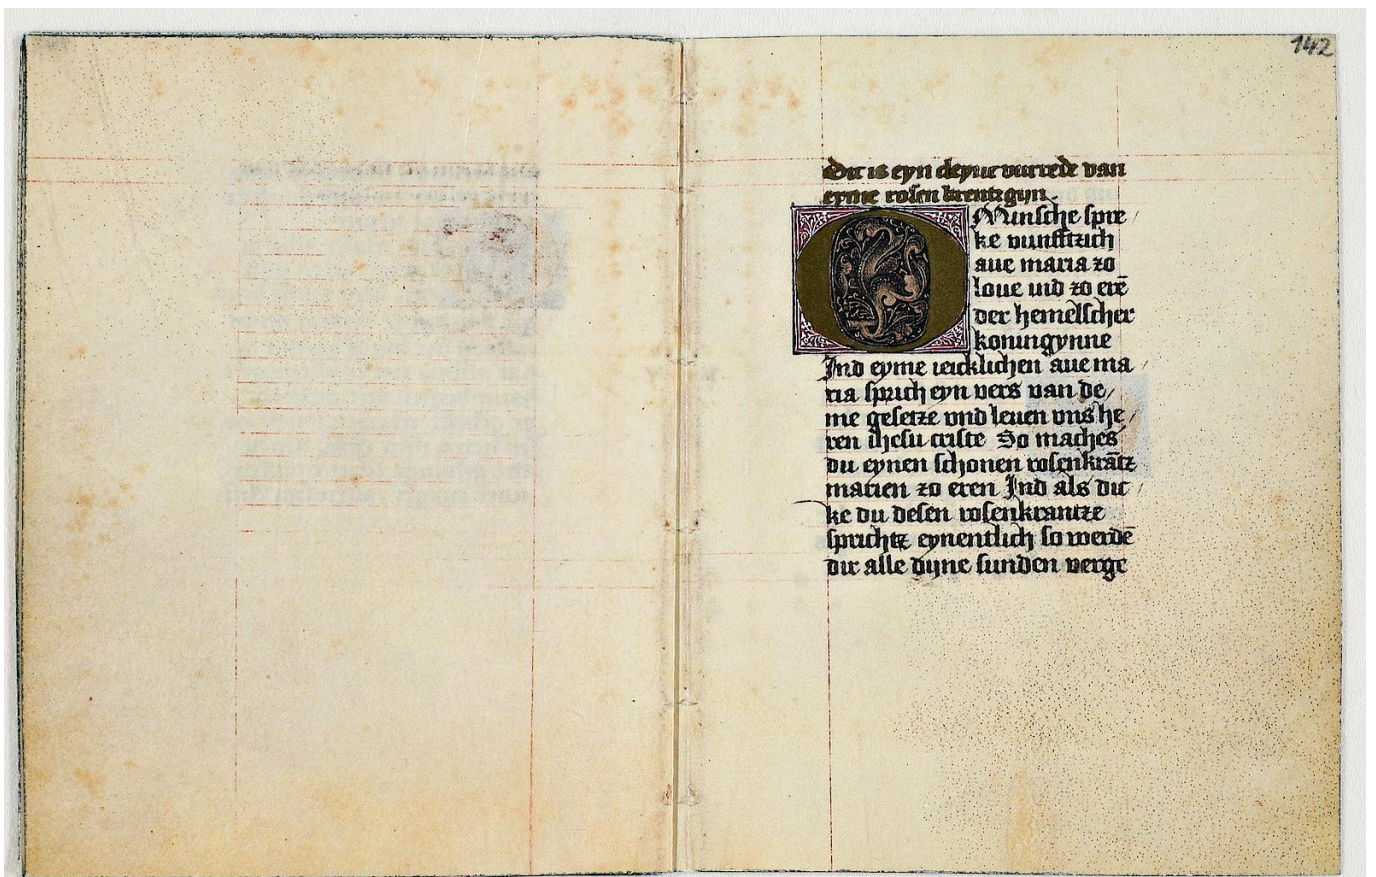 142
Dit is eyn cleyne vurrede van
eyme rosen krentzgijn.
O Minsche spre
ke vunfftzich
aue maria zo
loue vnd zo erē
der hemelscher
koningynne
Jnd eyme iecklichen aue ma
ria sprich eyn vers van de
me gesetze vnd leuen vns he
ren ihesu criste So maches
du eynen schonen rosenkrātz
marien zo eren Jnd als dic
ke du desen rosenkrantze
sprichtz eynentlich so werdē
dir alle dijne sunden verge